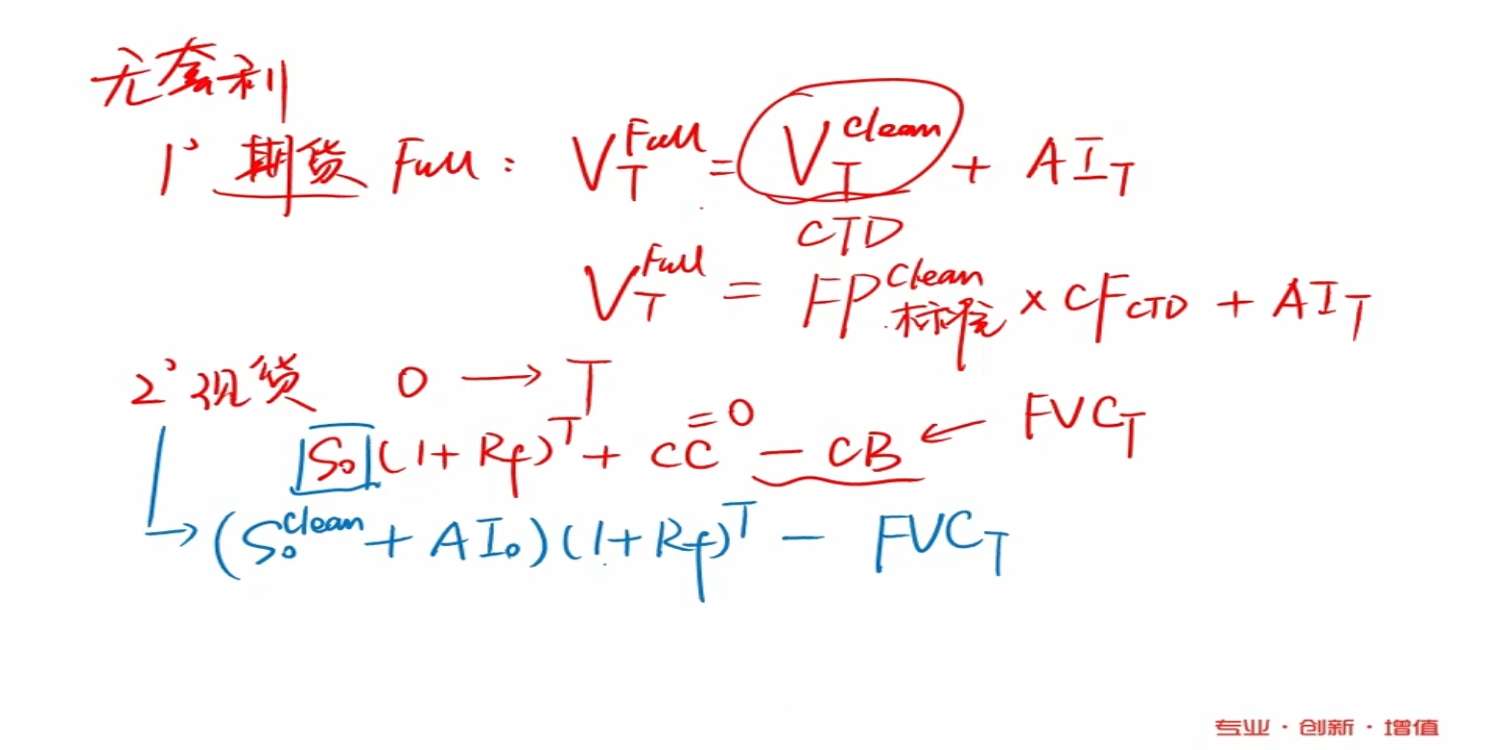 无套利
1° 期货 Full: V_T^Full = V_T^Clean + AI_T
CTD
V_T^Full = FP_标准^Clean × CF_CTD + AI_T
2° 现货 0 → T
S₀(1+Rf)^T + CC^=0 − CB ← FVC_T
→ (S₀^Clean + AI₀)(1+Rf)^T − FVC_T
专业·创新·增值